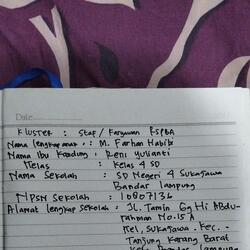 Date
KLUSTER : Staf / Karyawan RSPBA
Nama lengkap anak : M. Farhan Habibi
Nama Ibu Kandung : Reni Yulianti
Kelas : Kelas 4 SD
Nama Sekolah : SD Negeri 4 Sukajawa
Bandar lampung
NPSN Sekolah : 10807136
Alamat lengkap sekolah : JL. Tamin Gg Hi Abdu-
rahman No.15 A
Kel, Sukajawa. Kec. :
Tanjung Karang Barat